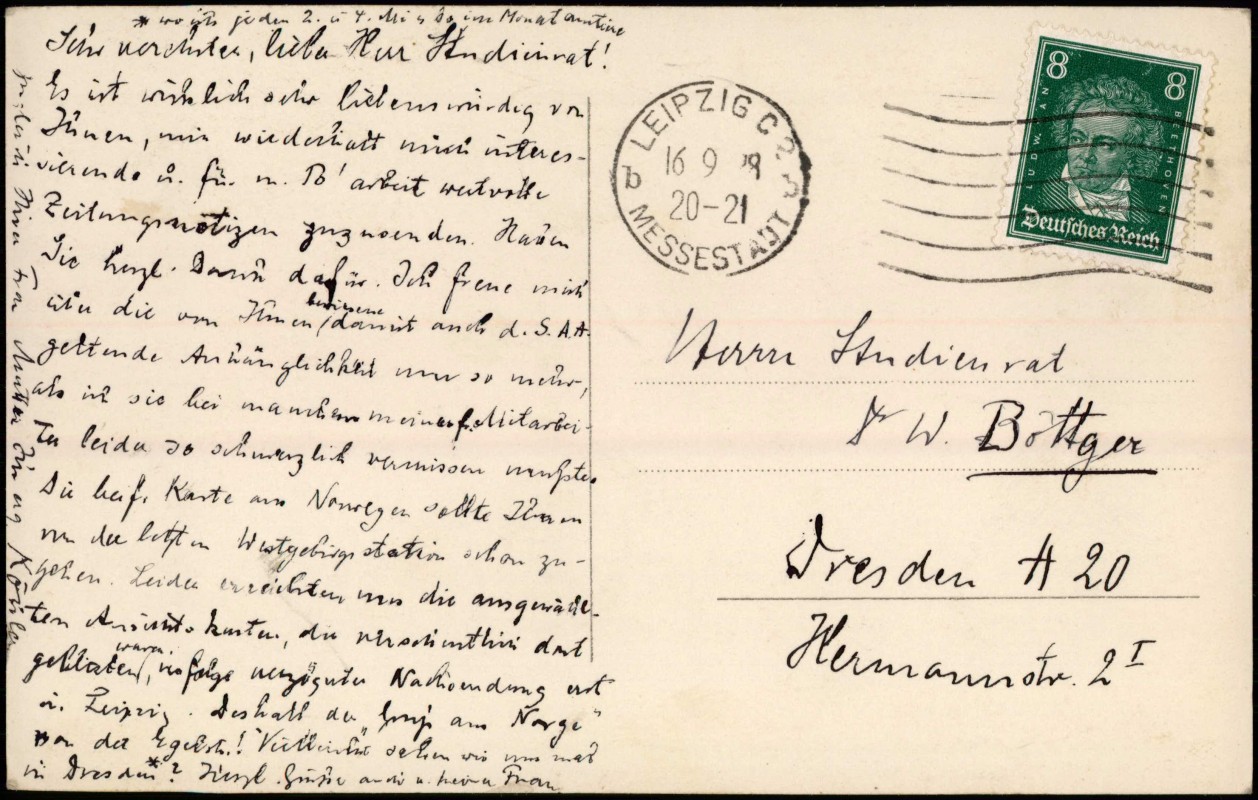 * wo ich jeden 2. u 4. Mi u Do im Monat amtiere
Sehr verehrter, lieber Herr Studienrat!
Es ist wirklich sehr liebenswürdig von
Ihnen, mir wiederholt mich interes-
sierende u. für m. Tb'arbeit wertvolle
Zeitungsnotizen zuzusenden. Haben
Sie herzl. Dank dafür. Ich freue mich
über die von Ihnen bewiesene, damit auch d. S.A.A.
geltende Anhänglichkeit um so mehr,
als ich sie bei manchem meiner Mitarbei-
ter leider so schmerzlich vermissen musste.
Die beif. Karte aus Norwegen sollte Ihnen
von der letzten Westgebirgsstation schon zu-
gehen. Leider erreichten uns die ausgewähl-
ten Ansichtskarten, die versehentlich dort
geblieben waren, infolge verzögerter Nachsendung erst
in Leipzig. Deshalb der "Gruß aus Norge"
von der Egelstr.! Vielleicht sehen wir uns mal
in Dresden*? Herzl. Grüße auch v. meiner Frau
Ihrer Frau Mutter Ihr erg.
LEIPZIG C 2
b
16 9 28
20-21
MESSESTADT
8 8
LUDWIG VAN
BEETHOVEN
Deutsches Reich
Herrn Studienrat
Dr W. Böttger
Dresden A 20
Hermannstr. 2 I